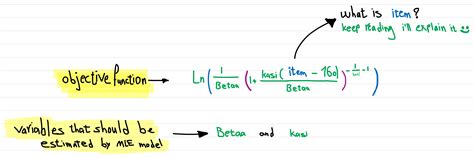 what is item?
keep reading i'll explain it
objective function → Ln( 1/Betaa (1+ kasi(item - 160)/Betaa )^(-1/kasi - 1) )
variables that should be → Betaa and kasi
estimated by MLE model